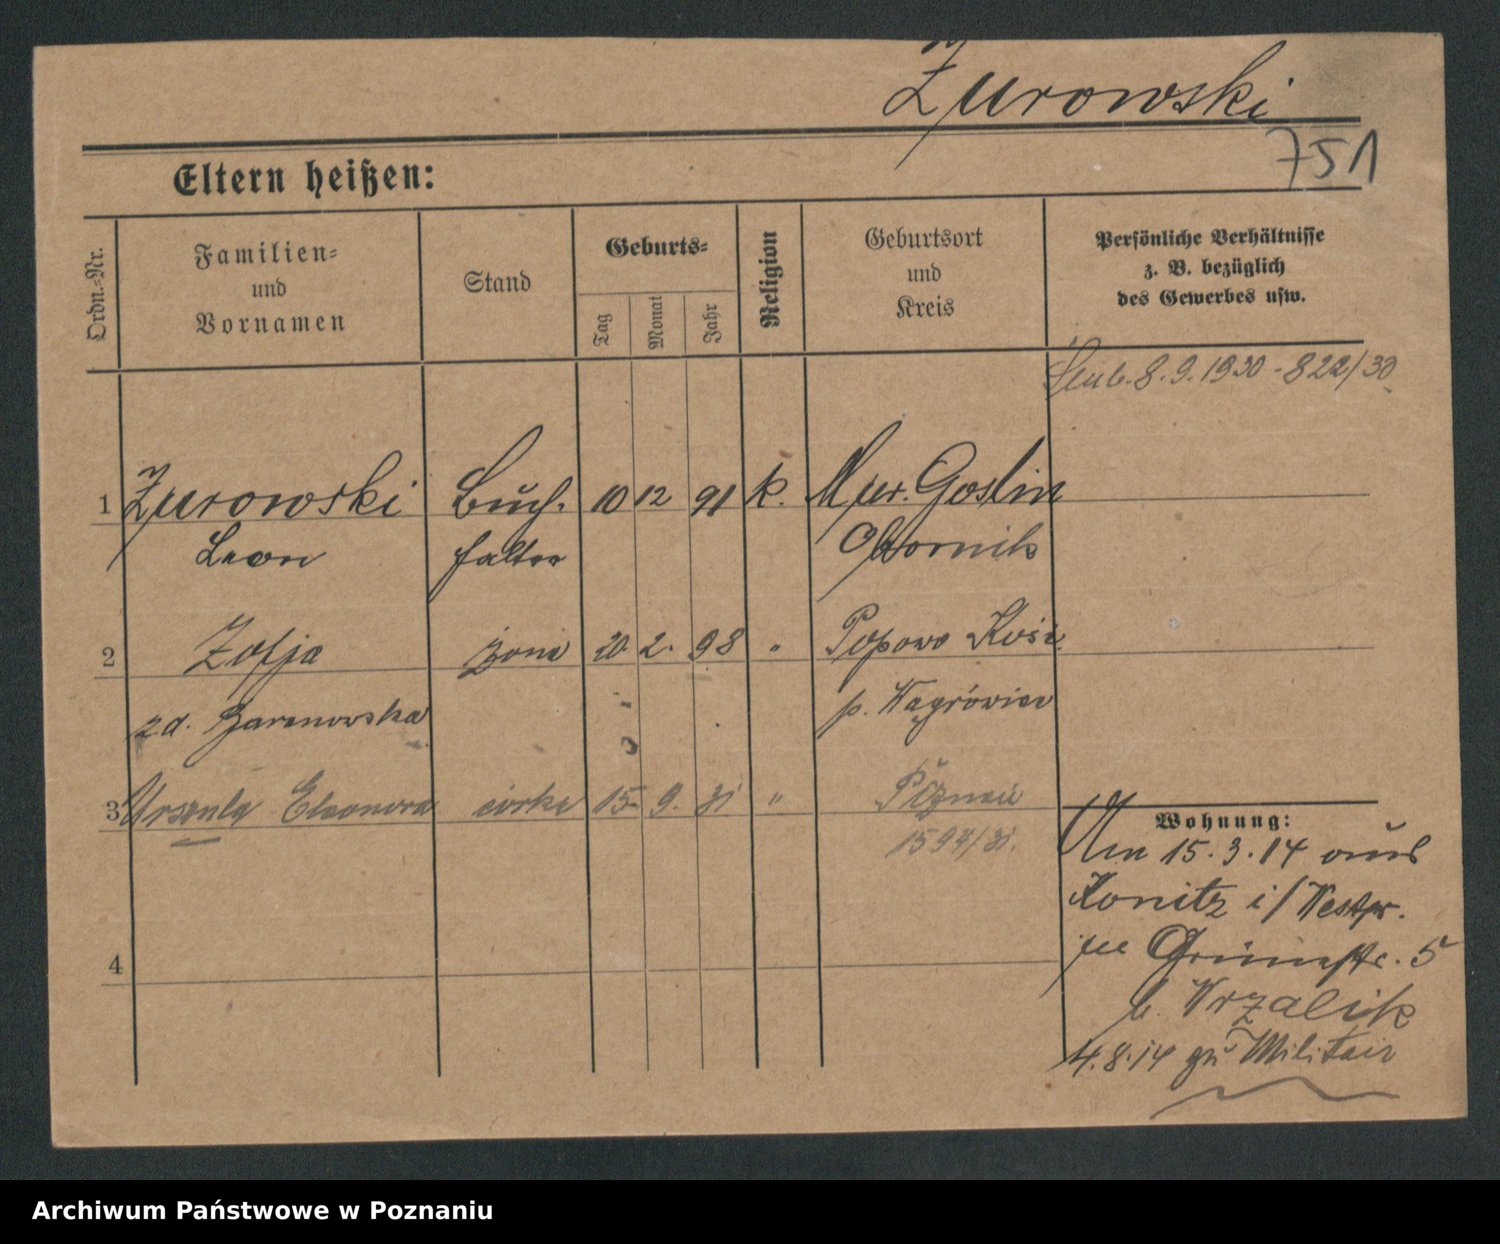 Żurowski
751
Eltern heißen:
Ordn.-Nr.
Familien-
und
Vornamen
Stand
Geburts-
Tag
Monat
Jahr
Religion
Geburtsort
und
Kreis
Persönliche Verhältnisse
z. B. bezüglich
des Gewerbes usw.
8.9.1930 - 822/30
1 Żurowski Buch- 10 12 91 k. Mur. Goslin
Leon halter Obornik
2 Zofja żona 20. 2. 98 " Popowo Kość.
zd. Baranowska p. Wągrówiec
3 Urszula Eleonora córka 15. 9. 31 " Poznań
1594/31.
4
Wohnung:
Am 15.3.14 aus
Konitz i/Westpr.
Grünestr. 5
b. Wrzalik
4.8.14 zu Militair
Archiwum Państwowe w Poznaniu